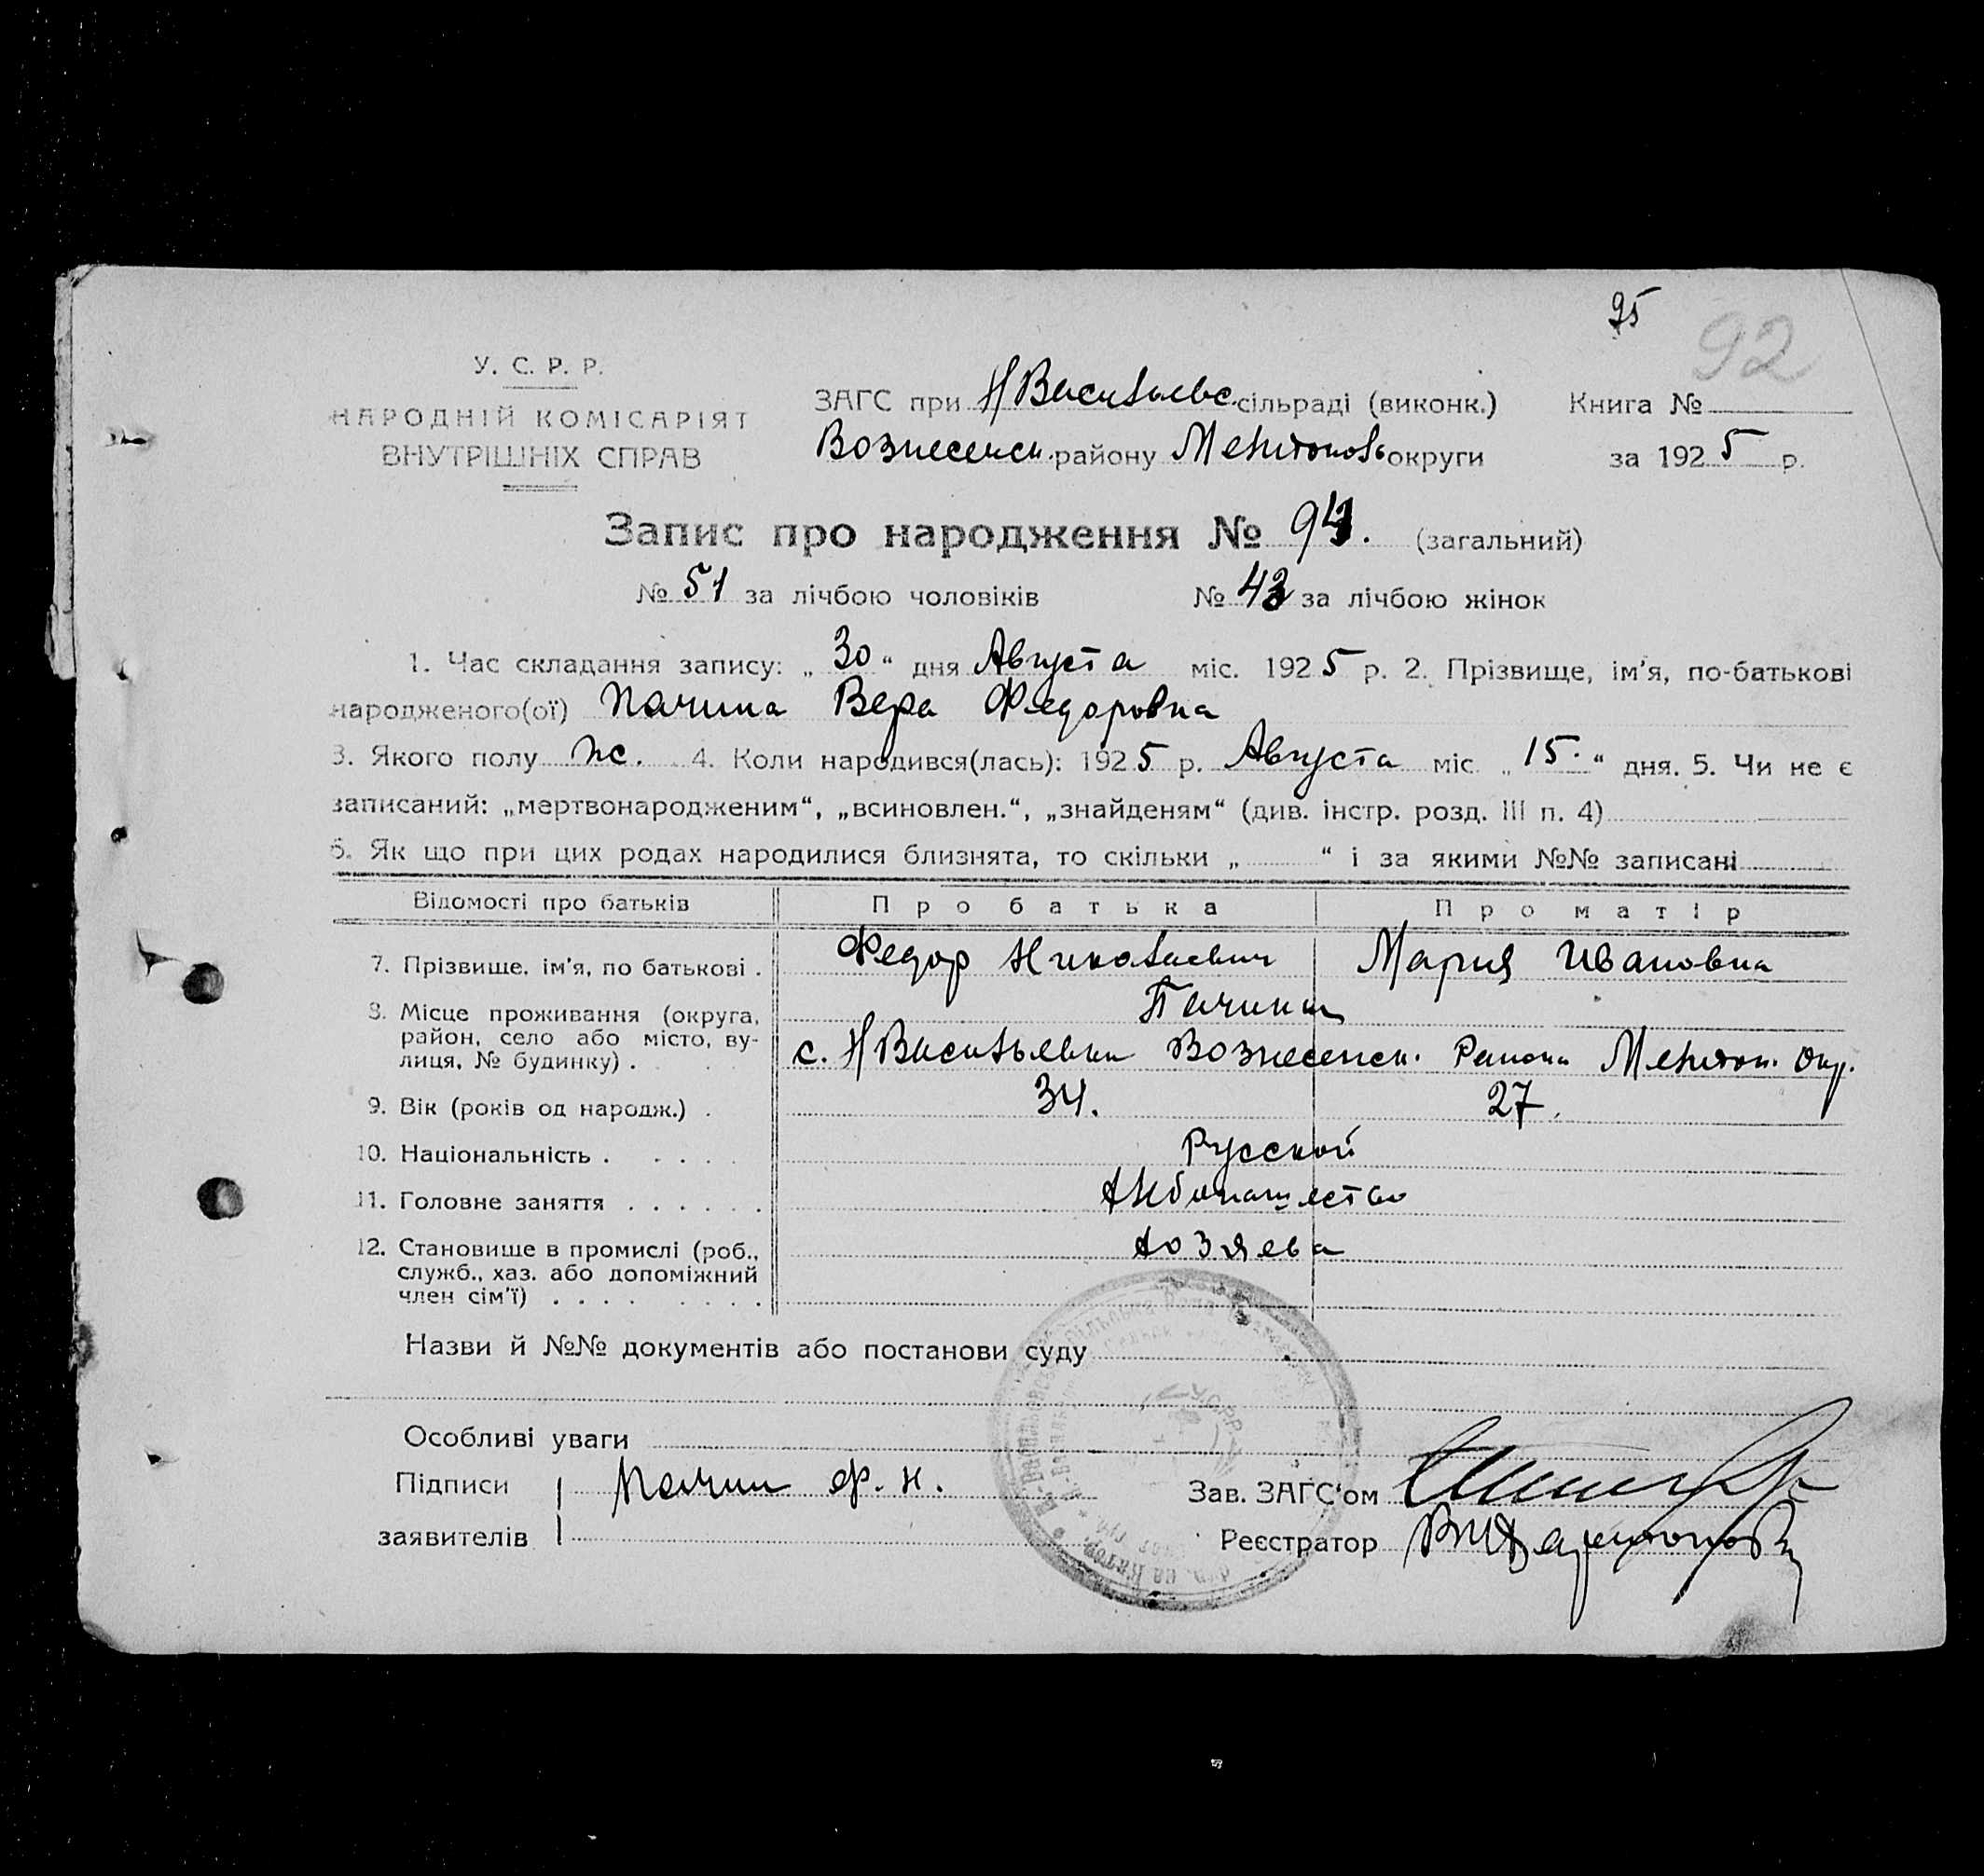 95
92
У. С. Р. Р.
НАРОДНІЙ КОМІСАРІЯТ
ВНУТРІШНІХ СПРАВ
ЗАГС при Н Васильевс. сільраді (виконк.) Книга №
Вознесенск. району Мелитопольокруги за 1925 р.
Запис про народження № 94. (загальний)
№ 51 за лічбою чоловіків № 43 за лічбою жінок
1. Час складання запису: „30“ дня Августа міс. 1925 р. 2. Прізвище, ім'я, по-батькові
народженого(ої) Пачина Вера Федоровна
3. Якого полу ж. 4. Коли народився(лась): 1925 р. Августа міс. „15.“ дня. 5. Чи не є
записаний: „мертвонародженим“, „всиновлен.“, „знайденям“ (див. інстр. розд. III п. 4)
6. Як що при цих родах народилися близнята, то скільки „ “ і за якими №№ записані
Відомості про батьків Про батька Про матір
7. Прізвище, ім'я, по батькові . Федор Николаевич Мария Ивановна
Пачины
8. Місце проживання (округа,
район, село або місто, ву-
лиця, № будинку) . с. Н Васильевки Вознесенск. Района Мелитоп. Окр.
9. Вік (років од народж.) . 34. 27.
10. Національність . . . . . Русской
11. Головне заняття . . . . . . Хлебопашество
12. Становище в промислі (роб.,
служб., хаз. або допоміжний
член сім'ї) . . . . . . . . хозяева
Назви й №№ документів або постанови суду
Особливі уваги
Підписи Пачин Ф. Н. Зав. ЗАГС'ом
заявителів Реєстратор
УСРР